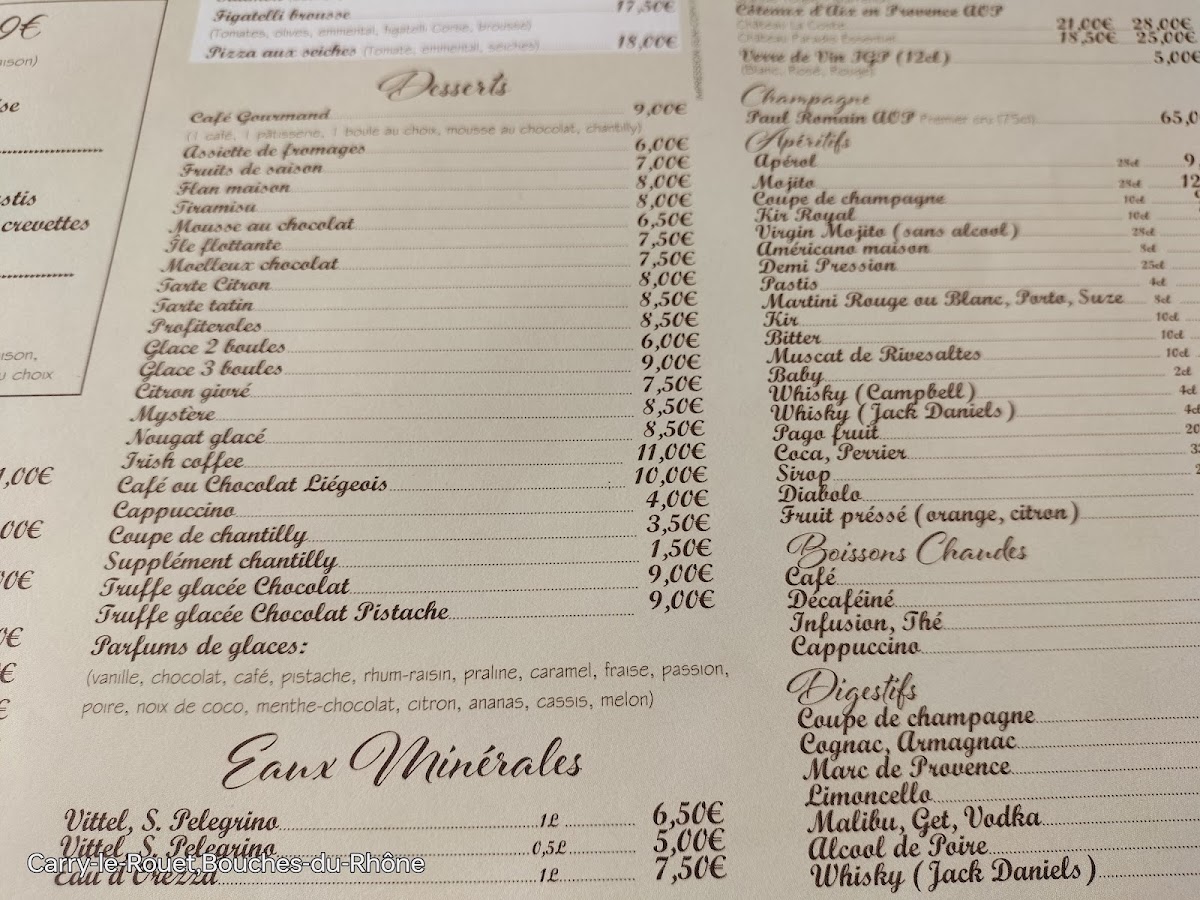 9€
Figatelli brousse 17,50€
(Tomates, olives, emmental, figatelli Corse, brousse)
Pizza aux seiches (Tomate, emmental, seiches) 18,00€
Desserts
Café Gourmand 9,00€
(1 café, 1 pâtisserie, 1 boule au choix, mousse au chocolat, chantilly)
Assiette de fromages 6,00€
Fruits de saison 7,00€
Flan maison 8,00€
Tiramisu 8,00€
Mousse au chocolat 6,50€
Île flottante 7,50€
Moelleux chocolat 7,50€
Tarte Citron 8,00€
Tarte tatin 8,50€
Profiteroles 8,50€
Glace 2 boules 6,00€
Glace 3 boules 9,00€
Citron givré 7,50€
Mystère 8,50€
Nougat glacé 8,50€
Irish coffee 11,00€
Café ou Chocolat Liégeois 10,00€
Cappuccino 4,00€
Coupe de chantilly 3,50€
Supplément chantilly 1,50€
Truffe glacée Chocolat 9,00€
Truffe glacée Chocolat Pistache 9,00€
Parfums de glaces:
(vanille, chocolat, café, pistache, rhum-raisin, praline, caramel, fraise, passion,
poire, noix de coco, menthe-chocolat, citron, ananas, cassis, melon)
Eaux Minérales
Vittel, S. Pelegrino 1L 6,50€
Vittel, S. Pelegrino 0,5L 5,00€
Eau d'Orezza 1L 7,50€
Côteaux d'Aix en Provence AOP
21,00€ 28,00€
18,50€ 25,00€
Verre de Vin IGP (12cl) 5,00€
(Blanc, Rosé, Rouge)
Champagne
Paul Romain AOP Premier cru (75cl) 65,0
Apéritifs
Apérol 28cl 9
Mojito 28cl 12
Coupe de champagne 10cl
Kir Royal 10cl
Virgin Mojito (sans alcool) 28cl
Américano maison 8cl
Demi Pression 25cl
Pastis 4cl
Martini Rouge ou Blanc, Porto, Suze 8cl
Kir 10cl
Bitter 10cl
Muscat de Rivesaltes 10cl
Baby 2cl
Whisky (Campbell) 4cl
Whisky (Jack Daniels) 4cl
Pago fruit 20
Coca, Perrier 33
Sirop
Diabolo
Fruit préssé (orange, citron)
Boissons Chaudes
Café
Décaféiné
Infusion, Thé
Cappuccino
Digestifs
Coupe de champagne
Cognac, Armagnac
Marc de Provence
Limoncello
Malibu, Get, Vodka
Alcool de Poire
Whisky (Jack Daniels)
Carry-le-Rouet,Bouches-du-Rhône